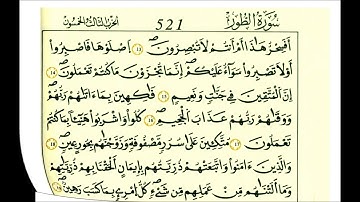 سُورَةُ الطُّورِ 521 الجزء السابع والعشرون
أَفَسِحْرٌ هَذَا أَمْ أَنتُمْ لَا تُبْصِرُونَ ١٥ اصْلَوْهَا فَاصْبِرُوا
أَوْ لَا تَصْبِرُوا سَوَاءٌ عَلَيْكُمْ إِنَّمَا تُجْزَوْنَ مَا كُنتُمْ تَعْمَلُونَ ١٦
إِنَّ الْمُتَّقِينَ فِي جَنَّاتٍ وَنَعِيمٍ ١٧ فَاكِهِينَ بِمَا آتَاهُمْ رَبُّهُمْ
وَوَقَاهُمْ رَبُّهُمْ عَذَابَ الْجَحِيمِ ١٨ كُلُوا وَاشْرَبُوا هَنِيئًا بِمَا كُنتُمْ
تَعْمَلُونَ ١٩ مُتَّكِئِينَ عَلَى سُرُرٍ مَّصْفُوفَةٍ وَزَوَّجْنَاهُم بِحُورٍ عِينٍ ٢٠
وَالَّذِينَ آمَنُوا وَاتَّبَعَتْهُمْ ذُرِّيَّتُهُم بِإِيمَانٍ أَلْحَقْنَا بِهِمْ ذُرِّيَّتَهُمْ
وَمَا أَلَتْنَاهُم مِّنْ عَمَلِهِم مِّن شَيْءٍ كُلُّ امْرِئٍ بِمَا كَسَبَ رَهِينٌ